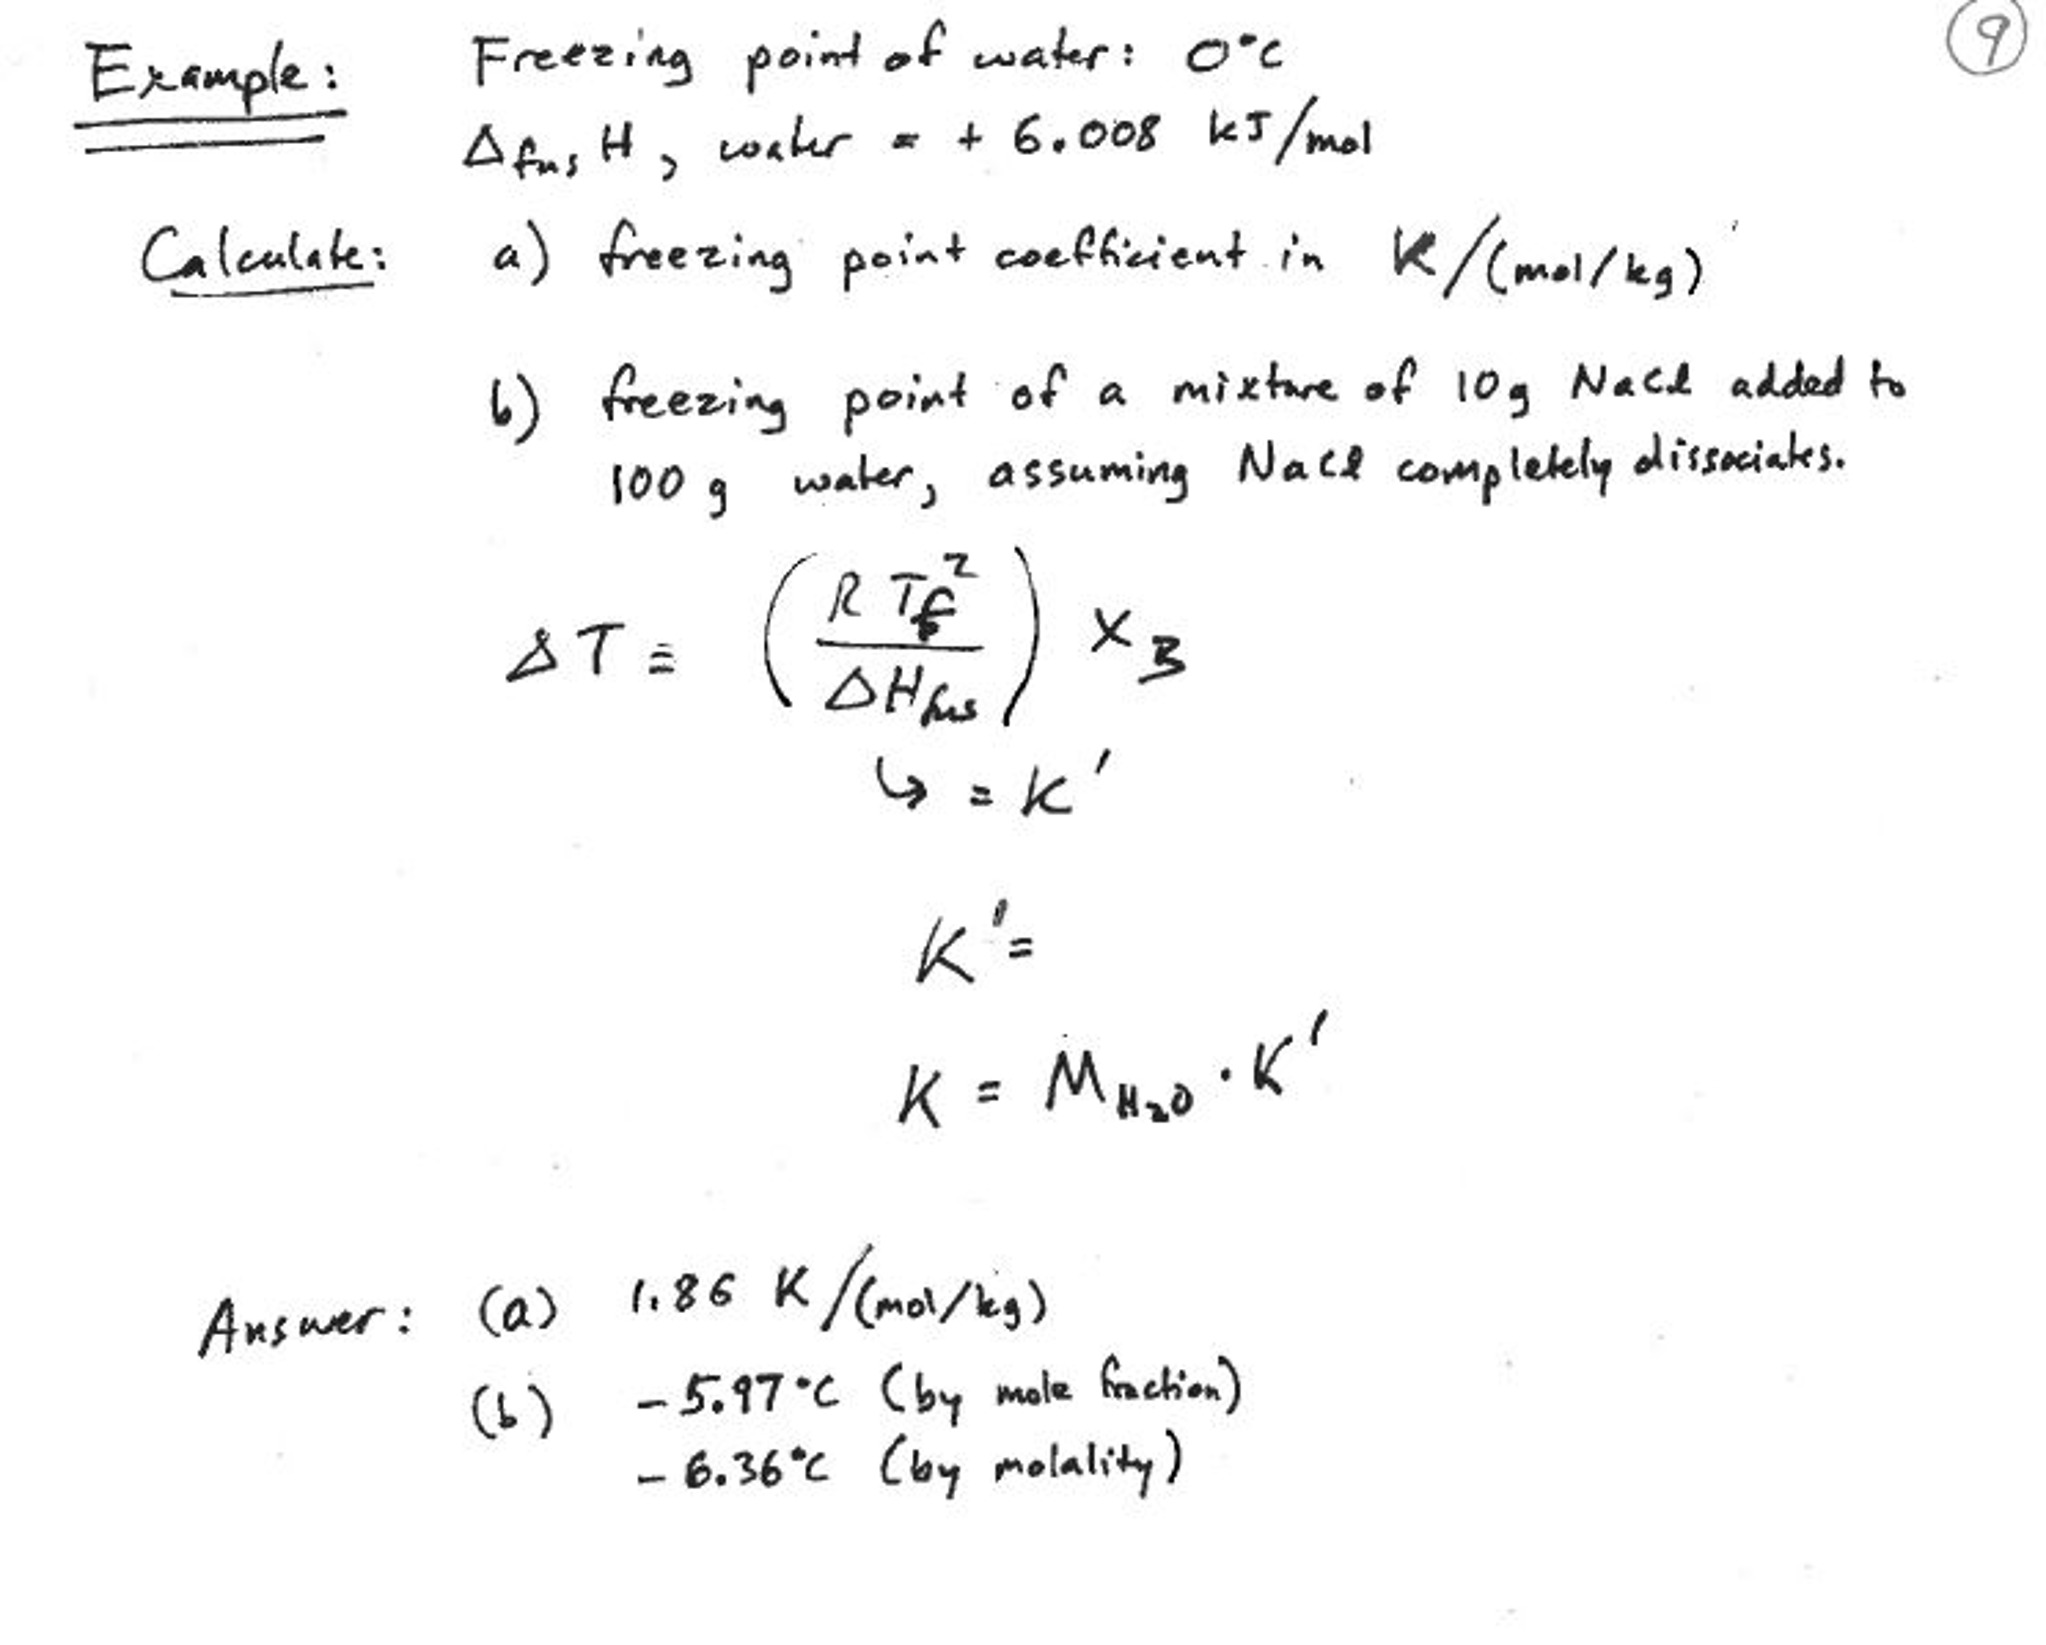 9
Example: Freezing point of water: 0°C
Δfus H, water = + 6.008 kJ/mol
Calculate: a) freezing point coefficient in K/(mol/kg)
b) freezing point of a mixture of 10g NaCl added to
100 g water, assuming NaCl completely dissociates.
ΔT = (R Tf² / ΔHfus) XB
↳ = K'
K' =
K = MH₂O · K'
Answer: (a) 1.86 K/(mol/kg)
(b) -5.97°C (by mole fraction)
-6.36°C (by molality)